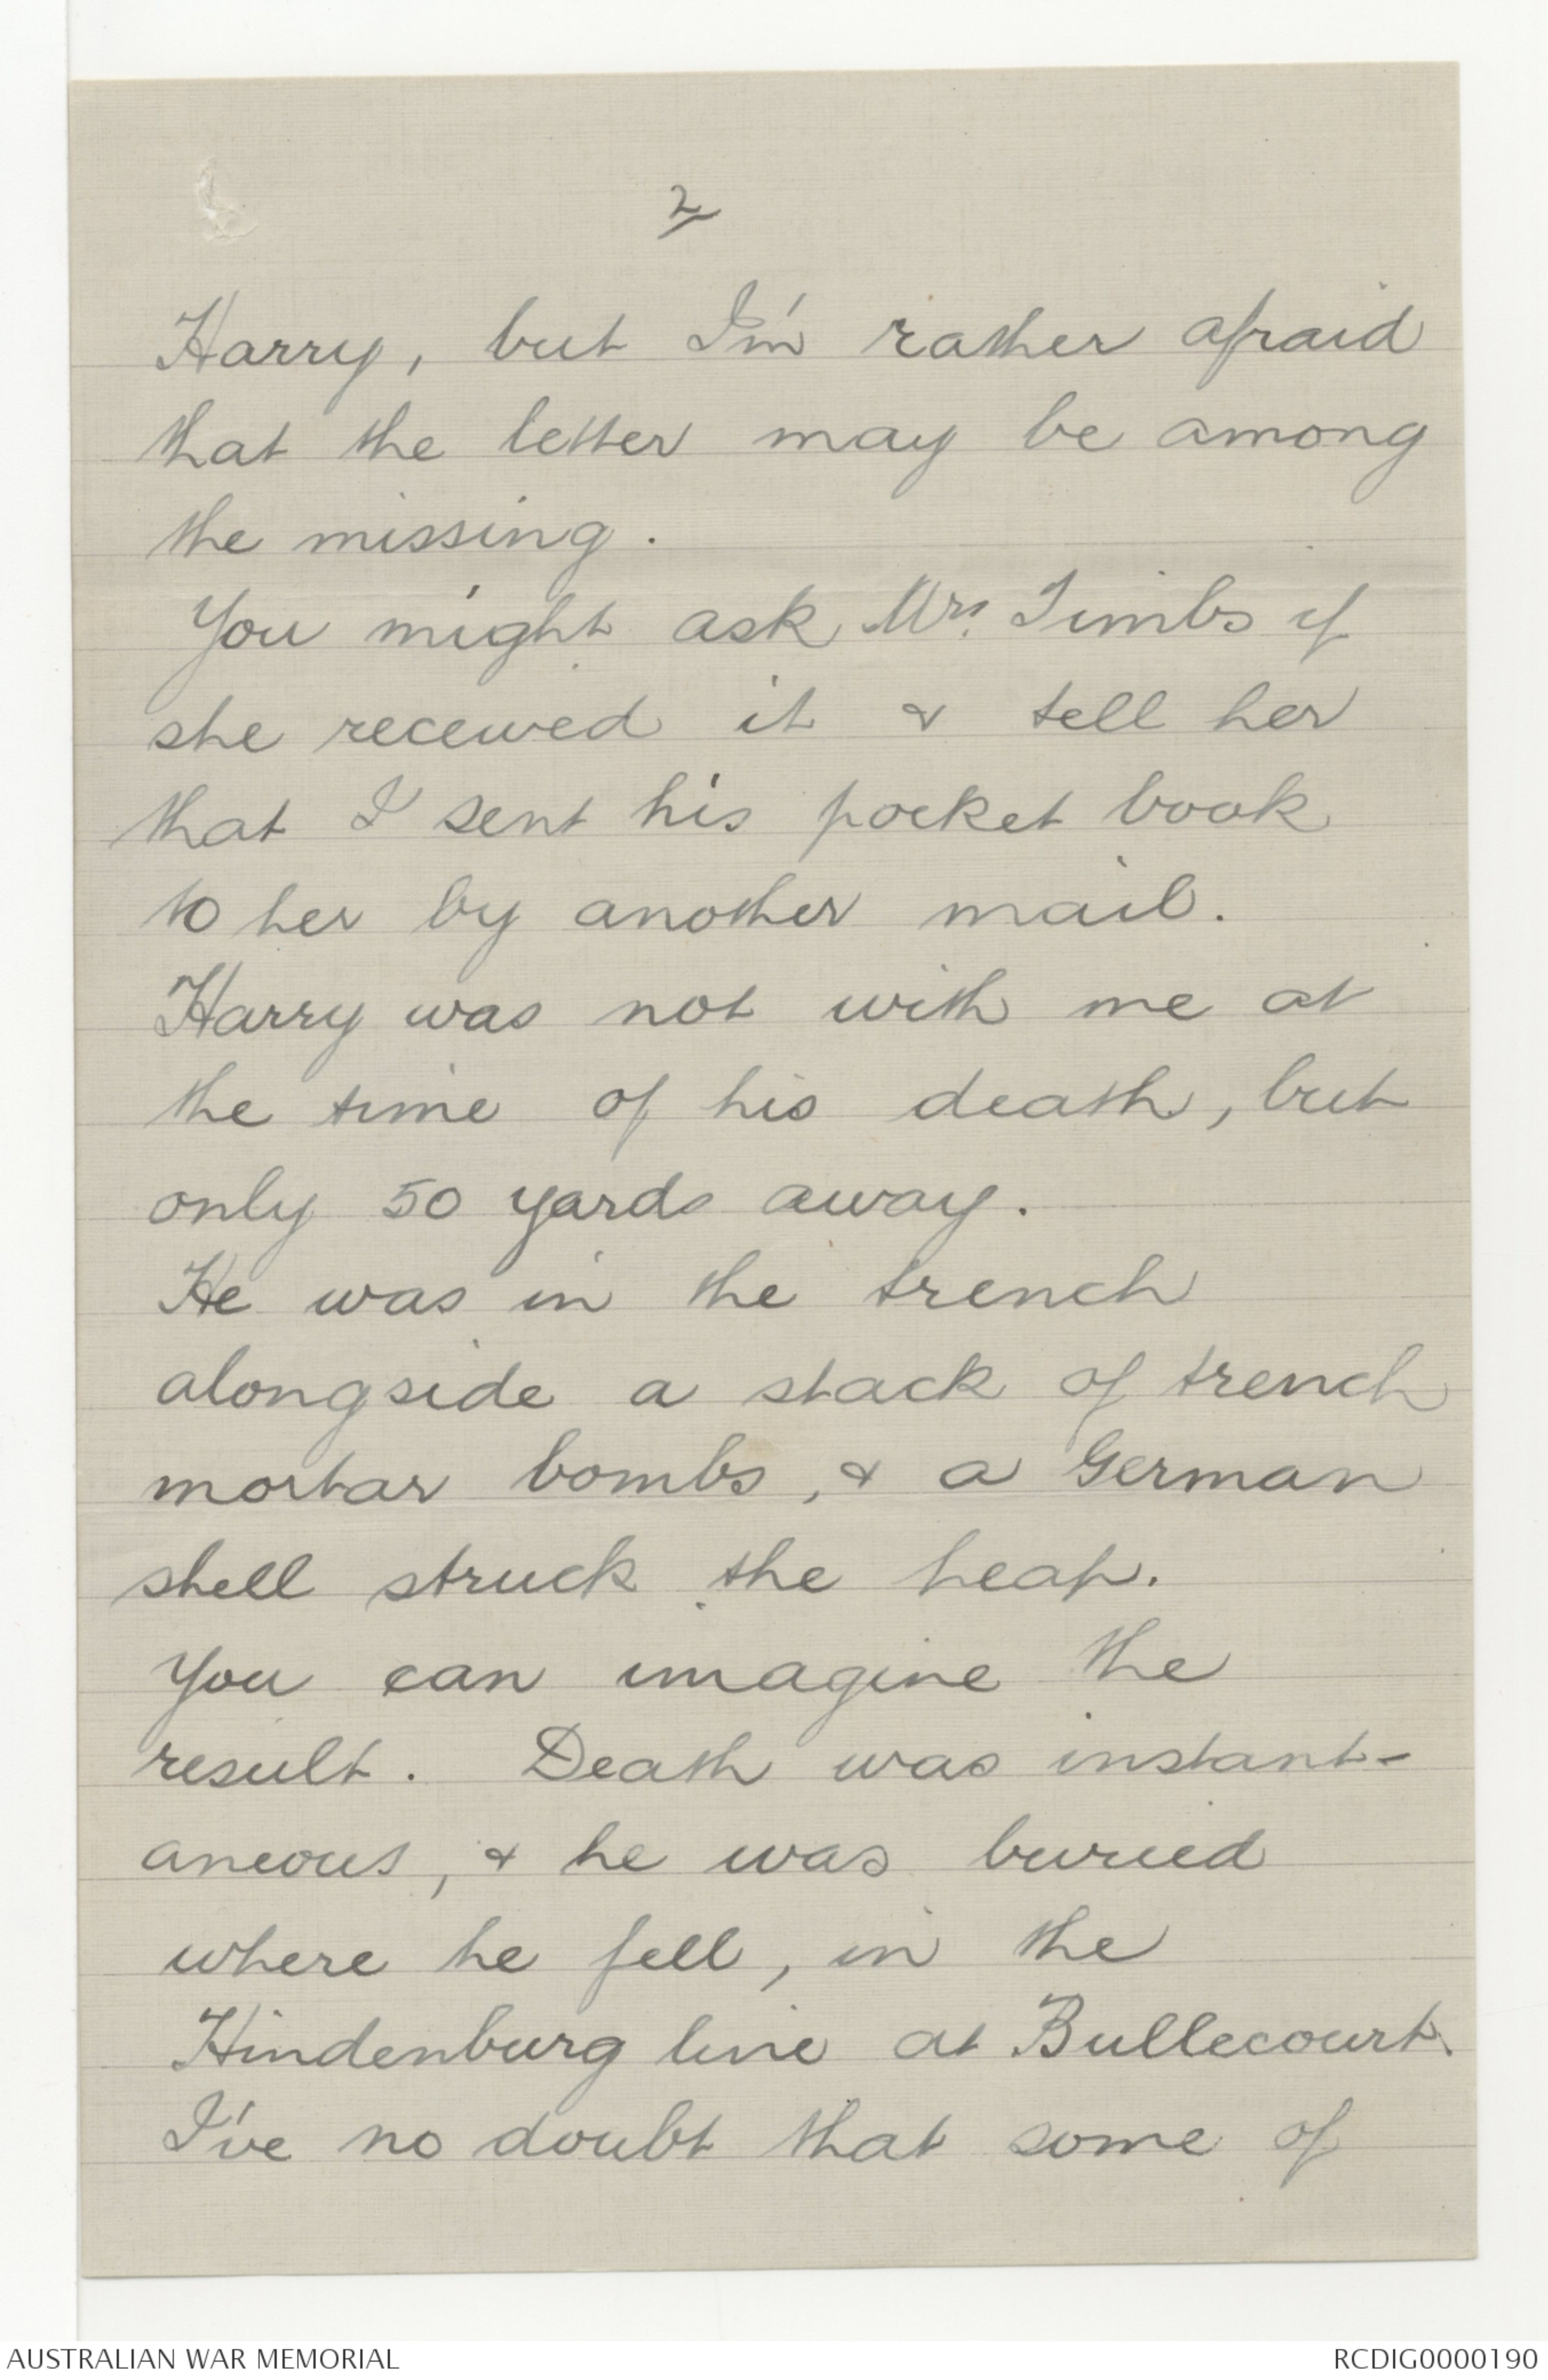 2/
Harry, but I'm rather afraid
that the letter may be among
the missing.
You might ask Mrs. Timbs if
she received it & tell her
that I sent his pocket book
to her by another mail.
Harry was not with me at
the time of his death, but
only 50 yards away.
He was in the trench
alongside a stack of trench
mortar bombs, & a German
shell struck the heap.
You can imagine the
result. Death was instant-
aneous, & he was buried
where he fell, in the
Hindenburg line at Bullecourt.
I've no doubt that some of
AUSTRALIAN WAR MEMORIAL
RCDIG0000190